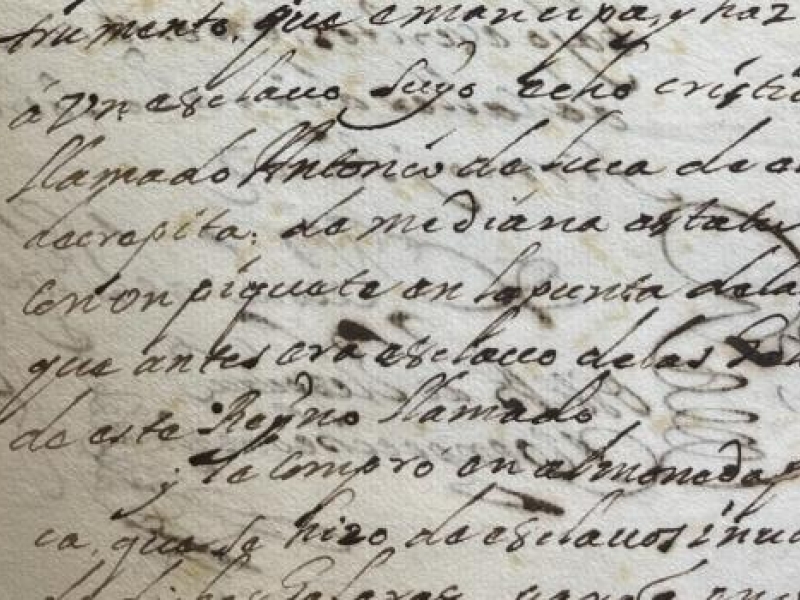 trumento, que emancipa, y haz
á Vn esclauo Suyo echo cristi
llamado Antonio de luca de e
decrepita: de mediana estatu
Con on piquete en la punta de la
que antes era esclauo de las
de este Reyno llamado
y le Compro en almoneda p
ca, que se hizo de esclauos inu